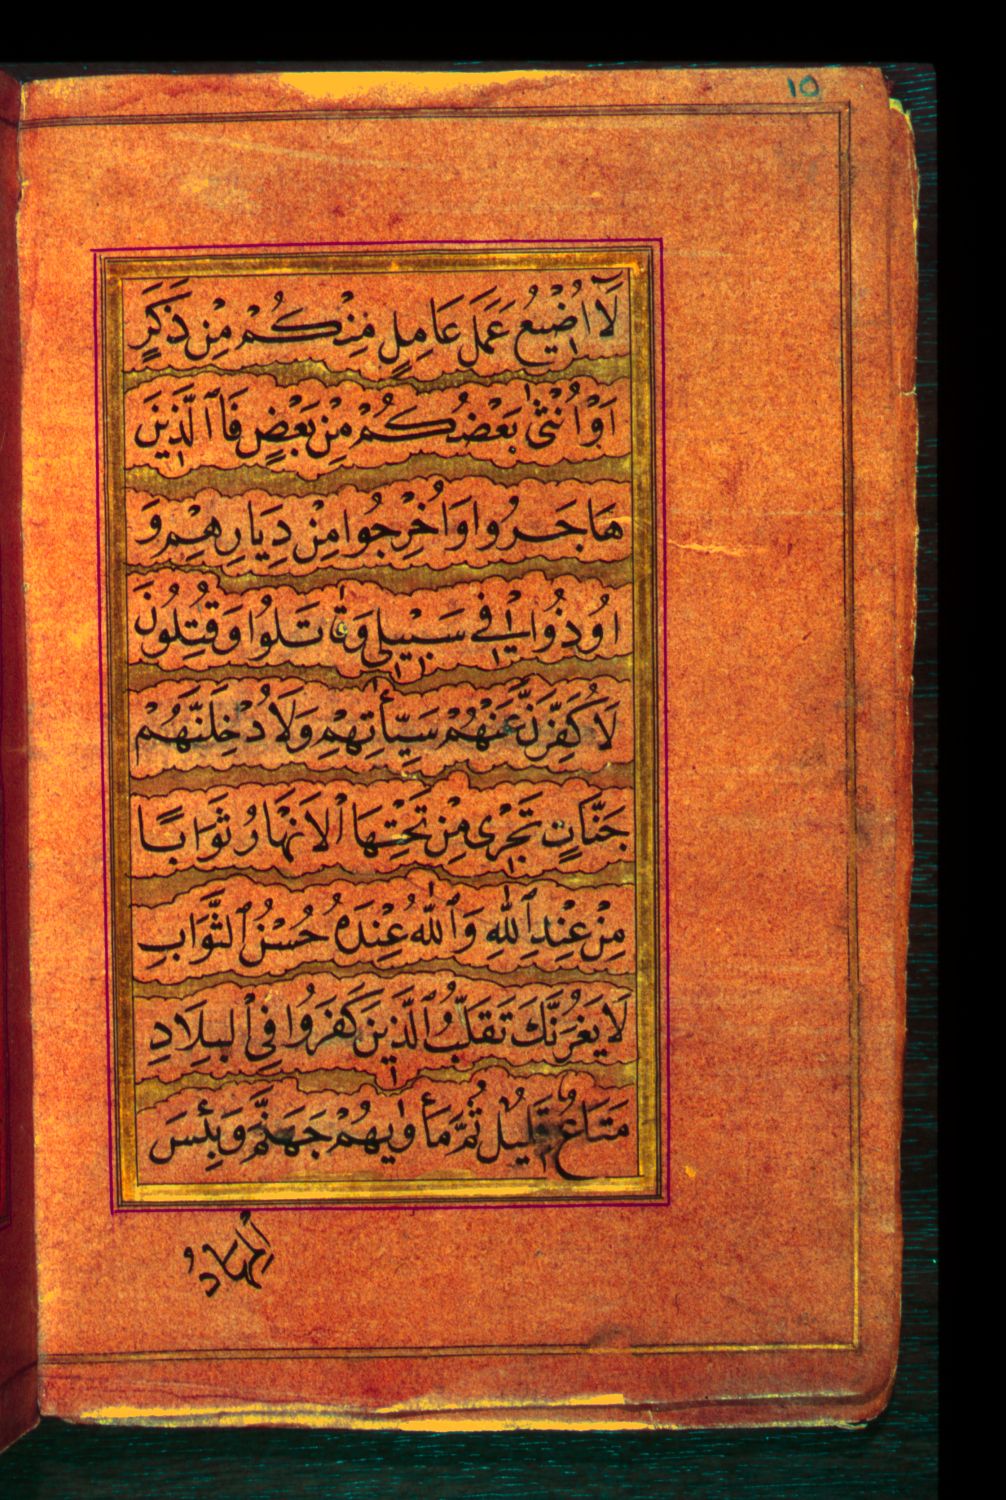 ١٥
لَآ اُضٖيعُ عَمَلَ عَامِلٍ مِنْكُمْ مِنْ ذَكَرٍ
اَوْ اُنْثٰى بَعْضُكُمْ مِنْ بَعْضٍ فَاالَّذٖينَ
هَاجَرُوا وَاُخْرِجُوا مِنْ دِيَارِهِمْ وَ
اُوذُوا فٖي سَبٖيلٖي وَقٰاتَلُوا وَقُتِلُونَ
لَاُكَفِّرَنَّ عَنْهُمْ سَيِّأٰتِهِمْ وَلَاُدْخِلَنَّهُمْ
جَنَّاتٍ تَجْرٖى مِنْ تَحْتِهَا الْاَنْهَارُ ثَوَابًا
مِنْ عِنْدِ اللّٰهِ وَاللّٰهُ عِنْدَهُ حُسْنُ الثَّوَابِ
لَا يَغُرَنَّكَ تَقَلُّبُ الَّذٖينَ كَفَرُوا فِي الْبِلَادِ
مَتَاعٌ قَلٖيلٌ ثُمَّ مَأْوٰيهُمْ جَهَنَّمُ وَبِئْسَ
الْمِهَادُ